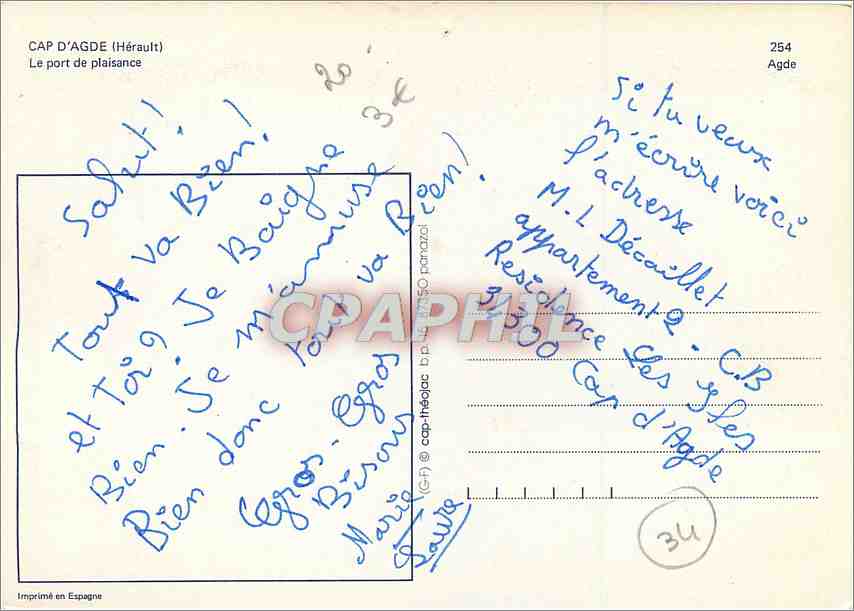 CAP D'AGDE (Hérault)
Le port de plaisance
254
Agde
20
3€
Salut!
Tout va Bien!
et Toi? Je Baigne
Bien. Je m'amuse
Bien donc tout va Bien!
Gros. Gros
Bisous
Marie
Laure
Si tu veux
m'écrire voici
l'adresse
M.L Décaillet
appartement 2. C.B
Residence Les Iles
3.300 Cap d'Agde
(G-F) © cap-théojac b.p. 46 87350 panazol
CPAPHIL
34
Imprimé en Espagne